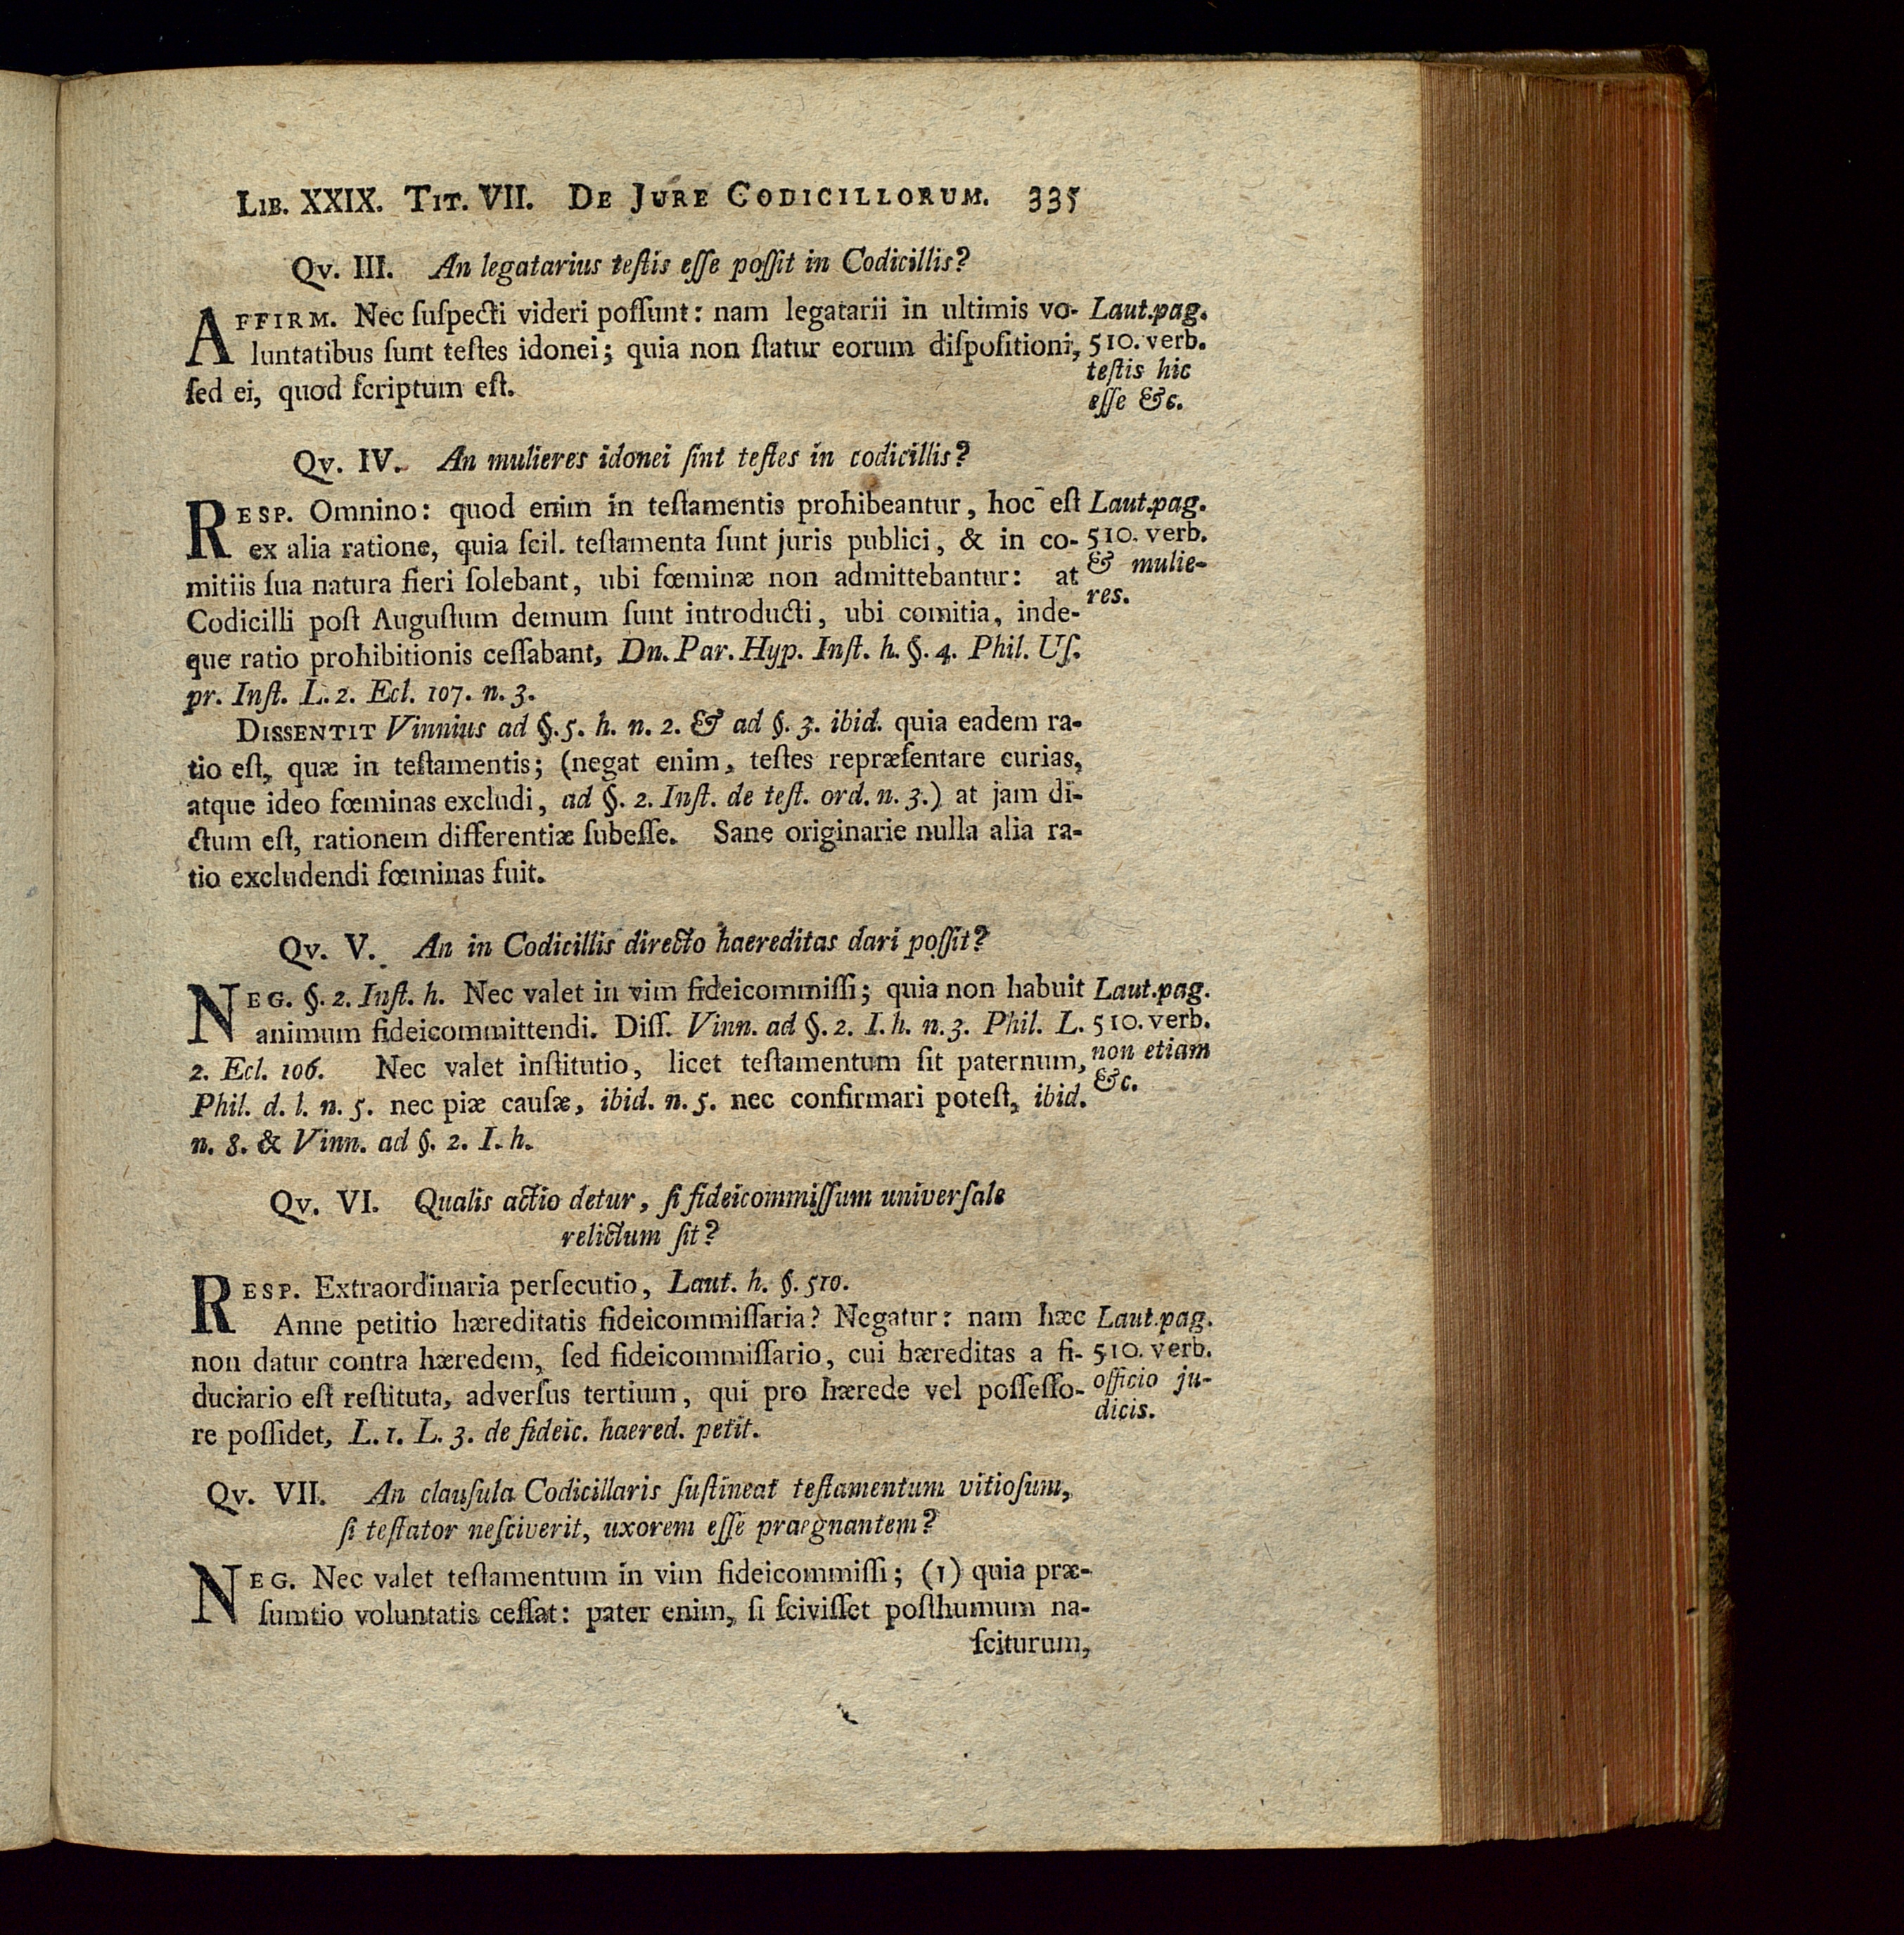 LIB. XXIX. TIT. VII. DE JURE CODICILLORUM. 335
Qv. III. An legatarius teſtis eſſe poſſit in Codicillis?
AFFIRM. Nec ſuſpecti videri poſſunt: nam legatarii in ultimis vo-
luntatibus ſunt teſtes idonei; quia non ſtatur eorum diſpoſitioni,
ſed ei, quod ſcriptum eſt.
Laut.pag.
510. verb.
teſtis hic
eſſe &c.
Qv. IV. An mulieres idonei ſint teſtes in codicillis?
RESP. Omnino: quod enim in teſtamentis prohibeantur, hoc eſt
ex alia ratione, quia ſcil. teſtamenta ſunt juris publici, & in co-
mitiis ſua natura fieri ſolebant, ubi fœminæ non admittebantur: at
Codicilli poſt Auguſtum demum ſunt introducti, ubi comitia, inde-
que ratio prohibitionis ceſſabant, Dn. Par. Hyp. Inſt. h. §. 4. Phil. Uſ.
pr. Inſt. L. 2. Ecl. 107. n. 3.
Laut.pag.
510. verb.
& mulie-
res.
DISSENTIT Vinnius ad §. 5. h. n. 2. & ad §. 3. ibid. quia eadem ra-
tio eſt, quæ in teſtamentis; (negat enim, teſtes repræſentare curias,
atque ideo fœminas excludi, ad §. 2. Inſt. de teſt. ord. n. 3.) at jam di-
ctum eſt, rationem differentiæ ſubeſſe. Sane originarie nulla alia ra-
tio excludendi fœminas fuit.
Qv. V. An in Codicillis directo haereditas dari poſſit?
NEG. §. 2. Inſt. h. Nec valet in vim fideicommiſſi; quia non habuit
animum fideicommittendi. Diſſ. Vinn. ad §. 2. I. h. n. 3. Phil. L.
2. Ecl. 106. Nec valet inſtitutio, licet teſtamentum ſit paternum,
Phil. d. l. n. 5. nec piæ cauſæ, ibid. n. 5. nec confirmari poteſt, ibid.
n. 8. & Vinn. ad §. 2. I. h.
Laut.pag.
510. verb.
non etiam
&c.
Qv. VI. Qualis actio detur, ſi fideicommiſſum univerſale
relictum ſit?
RESP. Extraordinaria perſecutio, Laut. h. §. 510.
Anne petitio hæreditatis fideicommiſſaria? Negatur: nam hæc
non datur contra hæredem, ſed fideicommiſſario, cui hæreditas a fi-
duciario eſt reſtituta, adverſus tertium, qui pro hærede vel poſſeſſo-
re poſſidet, L. 1. L. 3. de fideic. haered. petit.
Laut.pag.
510. verb.
officio ju-
dicis.
Qv. VII. An clauſula Codicillaris ſuſtineat teſtamentum vitioſum,
ſi teſtator neſciverit, uxorem eſſe praegnantem?
NEG. Nec valet teſtamentum in vim fideicommiſſi; (1) quia præ-
ſumtio voluntatis ceſſat: pater enim, ſi ſciviſſet poſthumum na-
ſciturum,